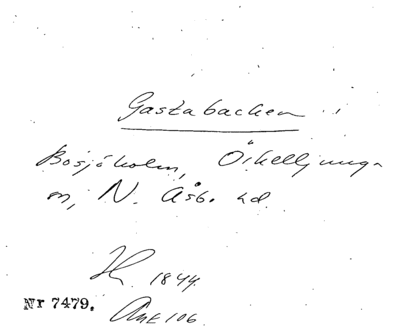 Gastabacken
Bosjöholm, Örkelljunga
sn, N. Åsb. hd
1844
Nr 7479. AME 106